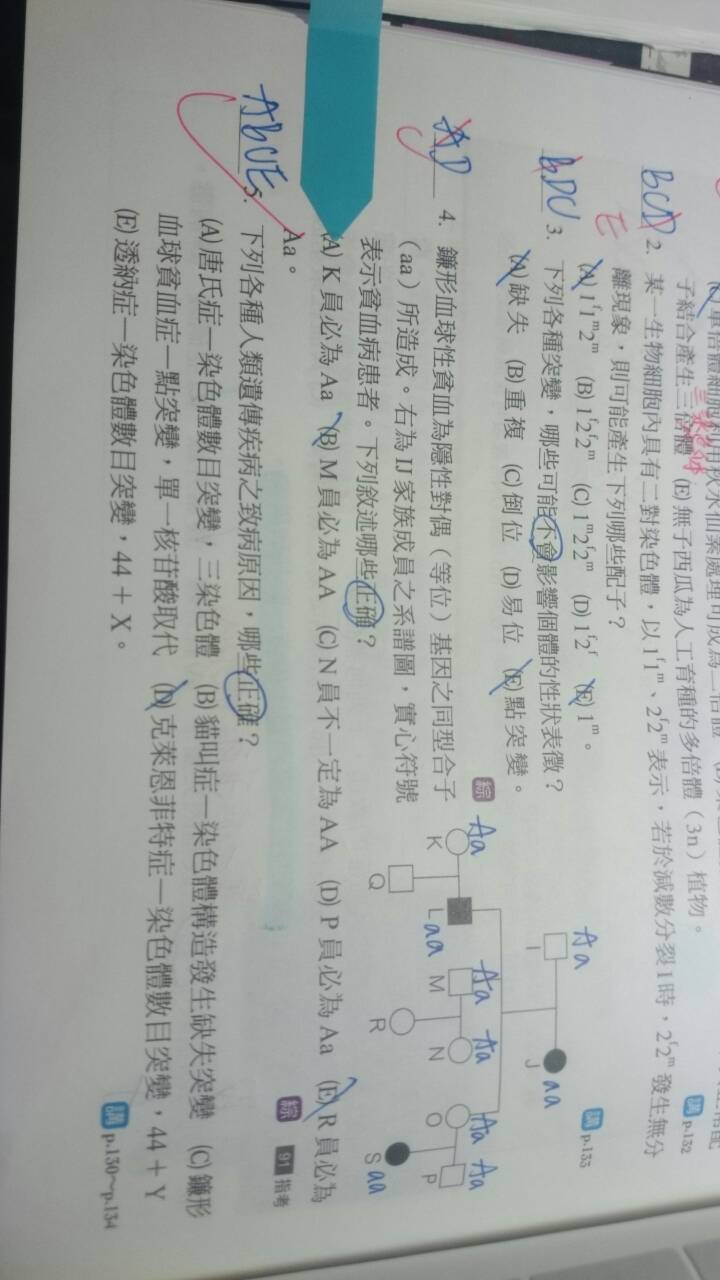 子結合產生三倍體 (E)無子西瓜為人工育種的多倍體（3n）植物。
三染色體
講 p.132
BCD
E
2. 某一生物細胞內具有二對染色體，以1ᶠ1ᵐ、2ᶠ2ᵐ表示，若於減數分裂I時，2ᶠ2ᵐ發生無分
離現象，則可能產生下列哪些配子？
(A) 1ᶠ1ᵐ2ᵐ (B) 1ᶠ2ᶠ2ᵐ (C) 1ᵐ2ᶠ2ᵐ (D) 1ᶠ2ᶠ (E) 1ᵐ。
講 p.133
BDC
3. 下列各種突變，哪些可能不會影響個體的性狀表徵？
(A)缺失 (B)重複 (C)倒位 (D)易位 (E)點突變。
綜
AD
4. 鐮形血球性貧血為隱性對偶（等位）基因之同型合子
（aa）所造成。右為IJ家族成員之系譜圖，實心符號
表示貧血病患者。下列敘述哪些正確？
(A) K員必為Aa (B) M員必為AA (C) N員不一定為AA (D) P員必為Aa (E) R員必為
Aa。
綜 91 指考
Aa aa
I J
Aa aa Aa Aa Aa Aa
K L M N O P
Q R S aa
ABCE
5. 下列各種人類遺傳疾病之致病原因，哪些正確？
(A)唐氏症－染色體數目突變，三染色體 (B)貓叫症－染色體構造發生缺失突變 (C)鐮形
血球貧血症－點突變，單一核苷酸取代 (D)克萊恩菲特症－染色體數目突變，44＋Y
(E)透納症－染色體數目突變，44＋X。
講 p.130～p.134